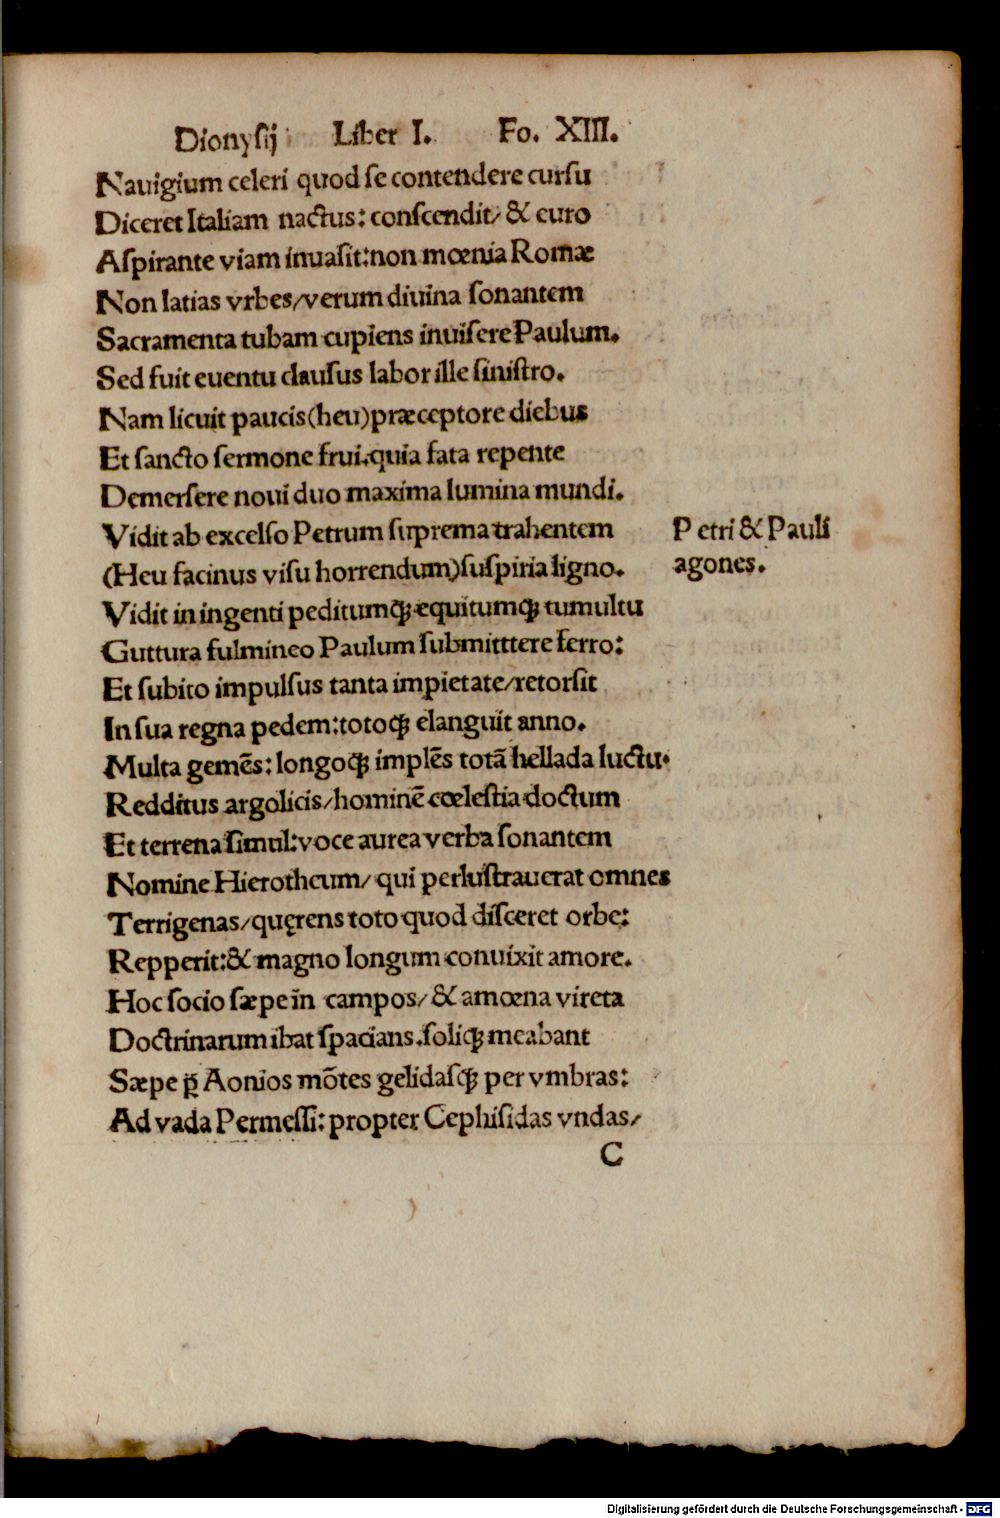 Dionysij Liber I. Fo. XIII.
Nauigium celeri quod se contendere cursu
Diceret Italiam nactus: conscendit/ & euro
Aspirante viam inuasit: non mœnia Romæ
Non latias vrbes/ verum diuina sonantem
Sacramenta tubam cupiens inuisere Paulum.
Sed fuit euentu clausus labor ille sinistro.
Nam licuit paucis (heu) præceptore diebus
Et sancto sermone frui. quia fata repente
Demersere noui duo maxima lumina mundi.
Vidit ab excelso Petrum suprema trahentem
(Heu facinus visu horrendum) suspiria ligno.
Vidit in ingenti peditumqꝫ equitumqꝫ tumultu
Guttura fulmineo Paulum submitttere ferro:
Et subito impulsus tanta impietate/ retorsit
In sua regna pedem: totoqꝫ elanguit anno.
Multa gemēs: longoqꝫ implēs totā hellada luctu.
Redditus argolicis/ hominē cœlestia doctum
Et terrena simul: voce aurea verba sonantem
Nomine Hierotheum/ qui perlustrauerat omnes
Terrigenas/ quęrens toto quod disceret orbe:
Repperit: & magno longum conuixit amore.
Hoc socio sæpe in campos/ & amœna vireta
Doctrinarum ibat spacians. soliqꝫ meabant
Sæpe p̱ Aonios mōtes gelidasqꝫ per vmbras:
Ad vada Permessi: propter Cephisidas vndas/
C
Petri & Pauli
agones.
Digitalisierung gefördert durch die Deutsche Forschungsgemeinschaft - DFG